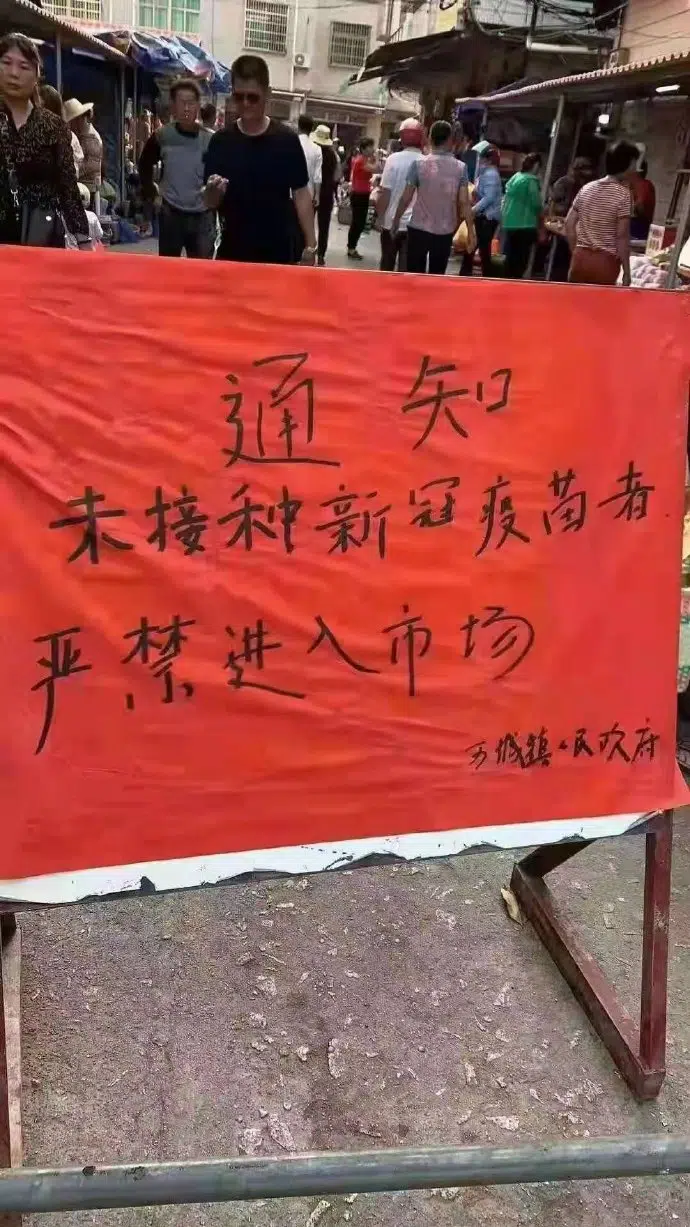 通知
未接种新冠疫苗者
严禁进入市场
万城镇人民政府